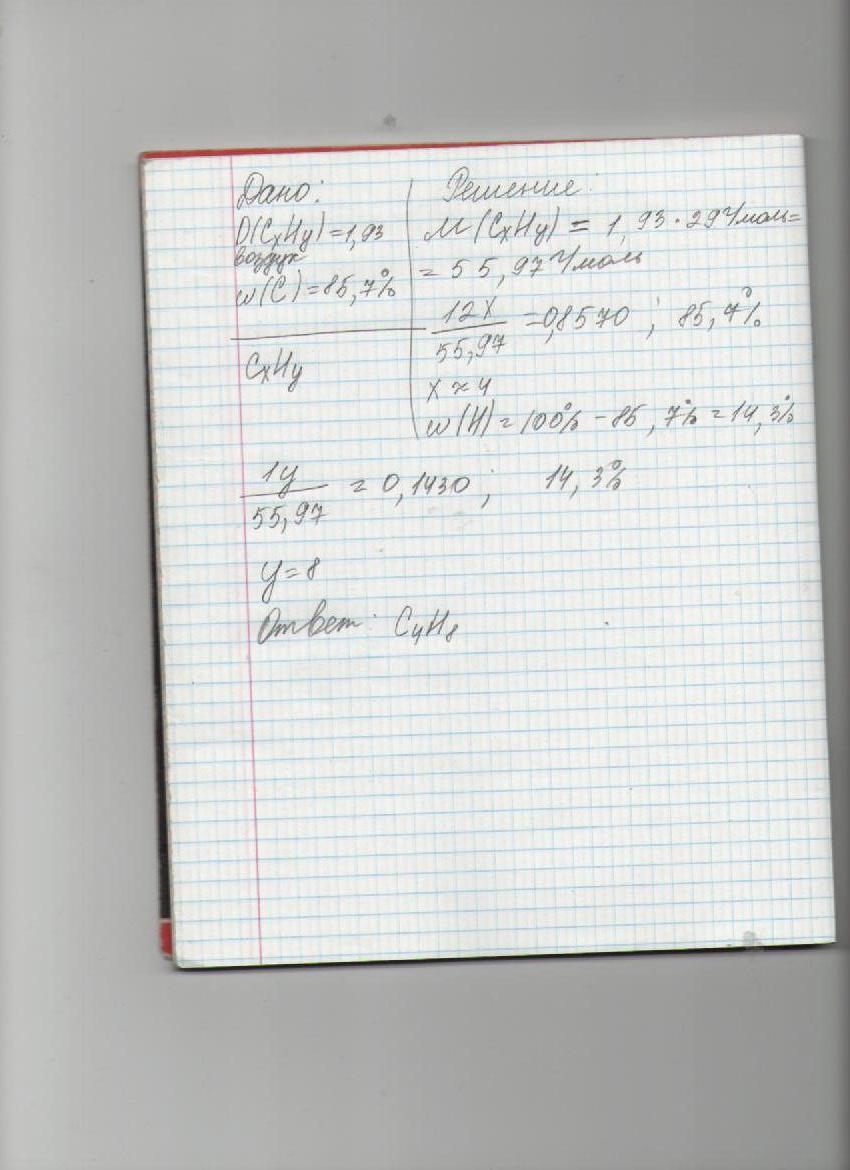 Дано:
D(CxHy)=1,93
воздух
w(C)=85,7%
CxHy
Решение:
M(CxHy) = 1,93·29г/моль=
=55,97г/моль
12x/55,97 =0,8570 ; 85,7%
x≈4
w(H)=100%-85,7%=14,3%
1y/55,97 = 0,1430 ; 14,3%
y=8
Ответ: C4H8